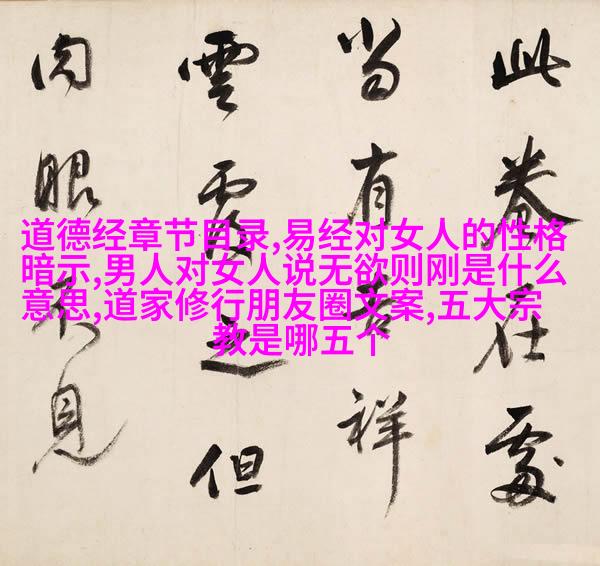 道德经章节目录,易经对女人的性格
暗示,男人对女人说无欲则刚是什么
意思,道家修行朋友圈文案,五大宗
教是哪五个
此卷在處
当有吉祥
雲覆之但
肉眼不見